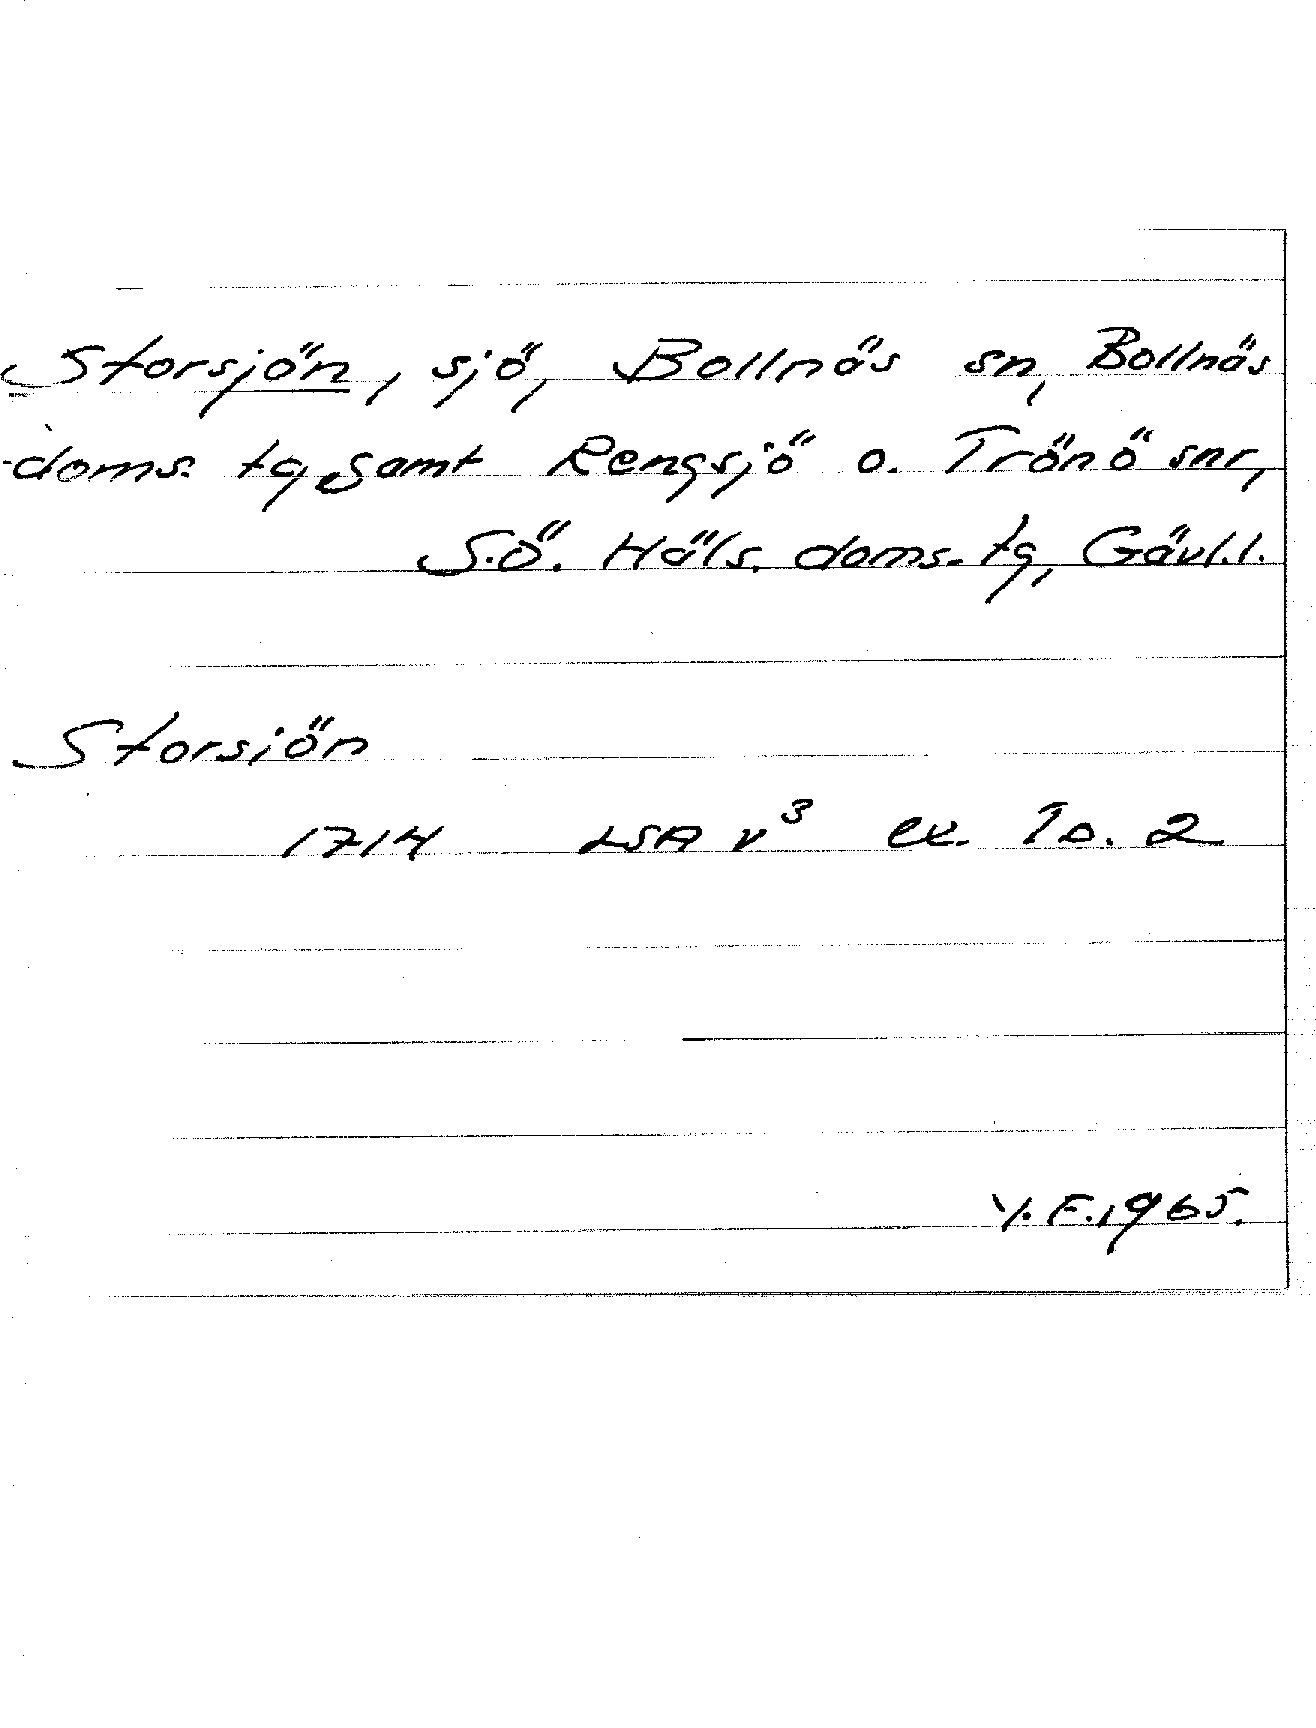 Storsjön, sjö, Bollnäs sn, Bollnäs
doms. tg samt Rengsjö o. Trönö snr,
S.Ö. Häls. doms. tg, Gävl.l.
Storsiön
1714 LSA v³ ex. 1 s. 2
Y. F. 1965.